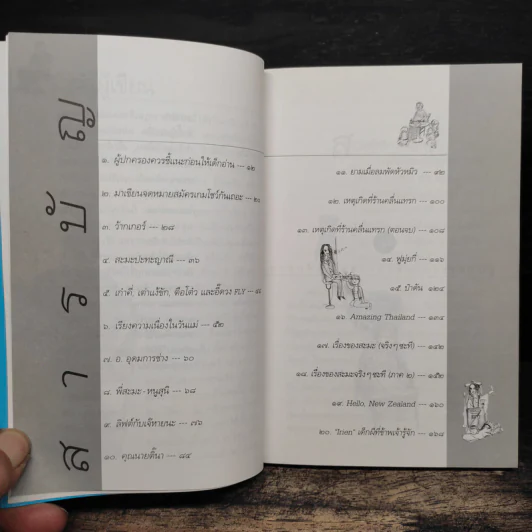 สารบัญ
๑. ผู้ปกครองควรชี้แนะก่อนให้เด็กอ่าน --- ๑๒
๒. มาเขียนจดหมายสมัครเกมโชว์กันเถอะ --- ๒๐
๓. ว้ากเกอร์ --- ๒๘
๔. สะมะปะทะญาณี --- ๓๖
๕. เก๋ากี้, เต๋าแง้ซัก, ตือโต๋ว และอี๊ดวง FLY ---
๖. เรียงความเนื่องในวันแม่ --- ๕๒
๗. อ. อุดมการช่าง --- ๖๐
๘. พี่สะมะ - หนูสุนิ --- ๖๘
๙. ลิฟต์กับเจ๊หายนะ --- ๗๖
๑๐. คุณนายตื๊นา --- ๘๔
๑๑. ยามเมื่อลมพัดหัวหมิว --- ๙๒
๑๒. เหตุเกิดที่ร้านคลื่นแทรก --- ๑๐๐
๑๓. เหตุเกิดที่ร้านคลื่นแทรก (ตอนจบ) --- ๑๐๘
๑๔. ฟูมุ่ยกี่ --- ๑๑๖
๑๕. ป้าต้น --- ๑๒๔
๑๖. Amazing Thailand --- ๑๓๔
๑๗. เรื่องของสะมะ (จริงๆซะที) --- ๑๔๒
๑๘. เรื่องของสะมะจริงๆซะที (ภาค ๒) --- ๑๕๒
๑๙. Hello, New Zealand --- ๑๖๐
๒๐. เด็กผีที่ข้าพเจ้ารู้จัก --- ๑๖๘